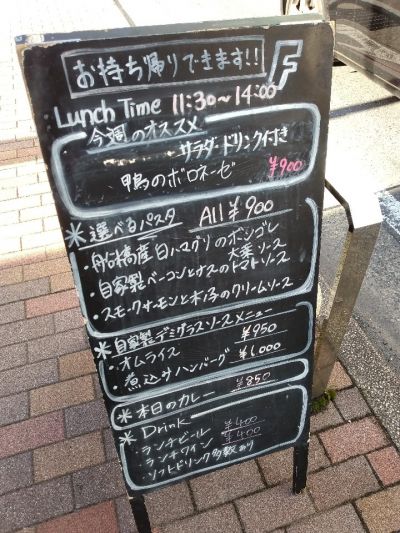 お持ち帰りできます!!
F
Lunch Time 11:30～14:00
今週のオススメ
サラダ・ドリンク付き
鴨のボロネーゼ
¥900
＊選べるパスタ All ¥900
・船橋産白ハマグリのボンゴレ
大葉ソース
・自家製ベーコンとナスのトマトソース
・スモークサーモンと木ノ子のクリームソース
＊自家製デミグラスソースメニュー
・オムライス ¥950
・煮込みハンバーグ ¥1,000
＊本日のカレー ¥850
＊Drink
・ランチビール ¥400
・ランチワイン ¥400
・ソフトドリンク多数あり